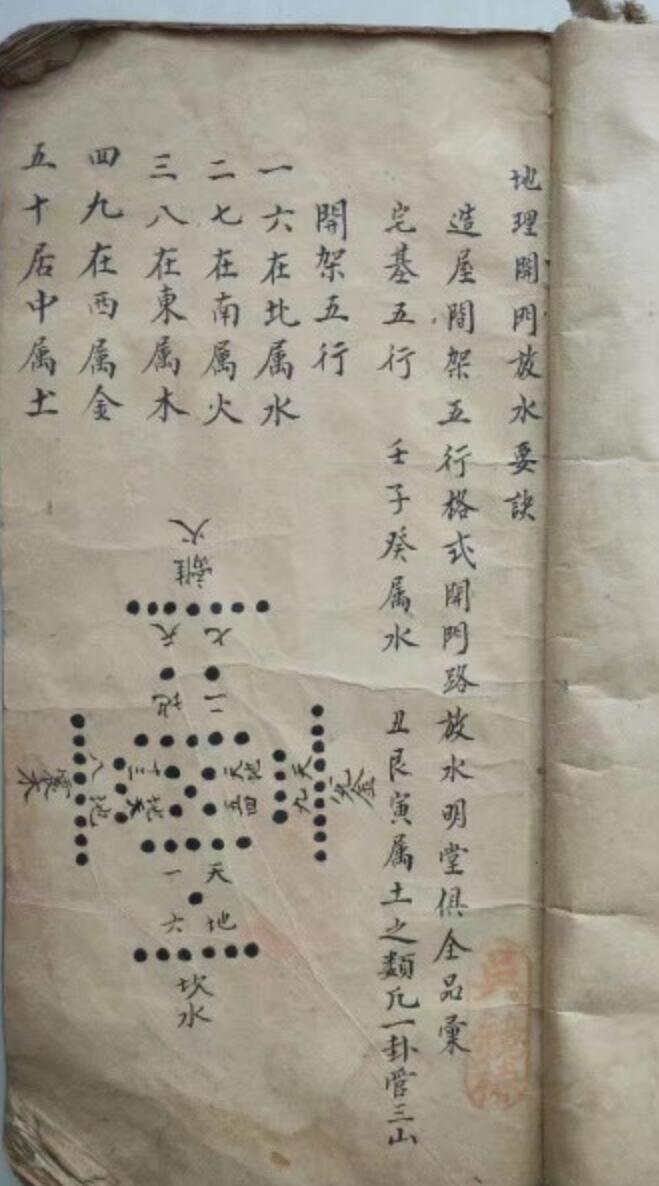 地理開門放水要訣
造屋間架五行格式開門路放水明堂俱全品彙
宅基五行 壬子癸属水 丑艮寅属土之類凢一卦管三山
開架五行
一六在北属水
二七在南属火
三八在東属木
四九在西属金
五十居中属土
離火
七 天
二 地
地
天
四
五
十
三
天
地
天
九
金
八
地
震木
天一
地六
坎水